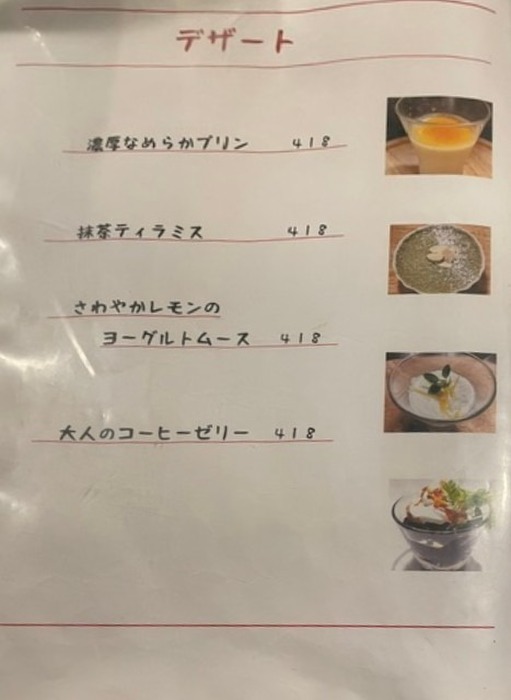 デザート
濃厚なめらかプリン 418
抹茶ティラミス 418
さわやかレモンの
ヨーグルトムース 418
大人のコーヒーゼリー 418